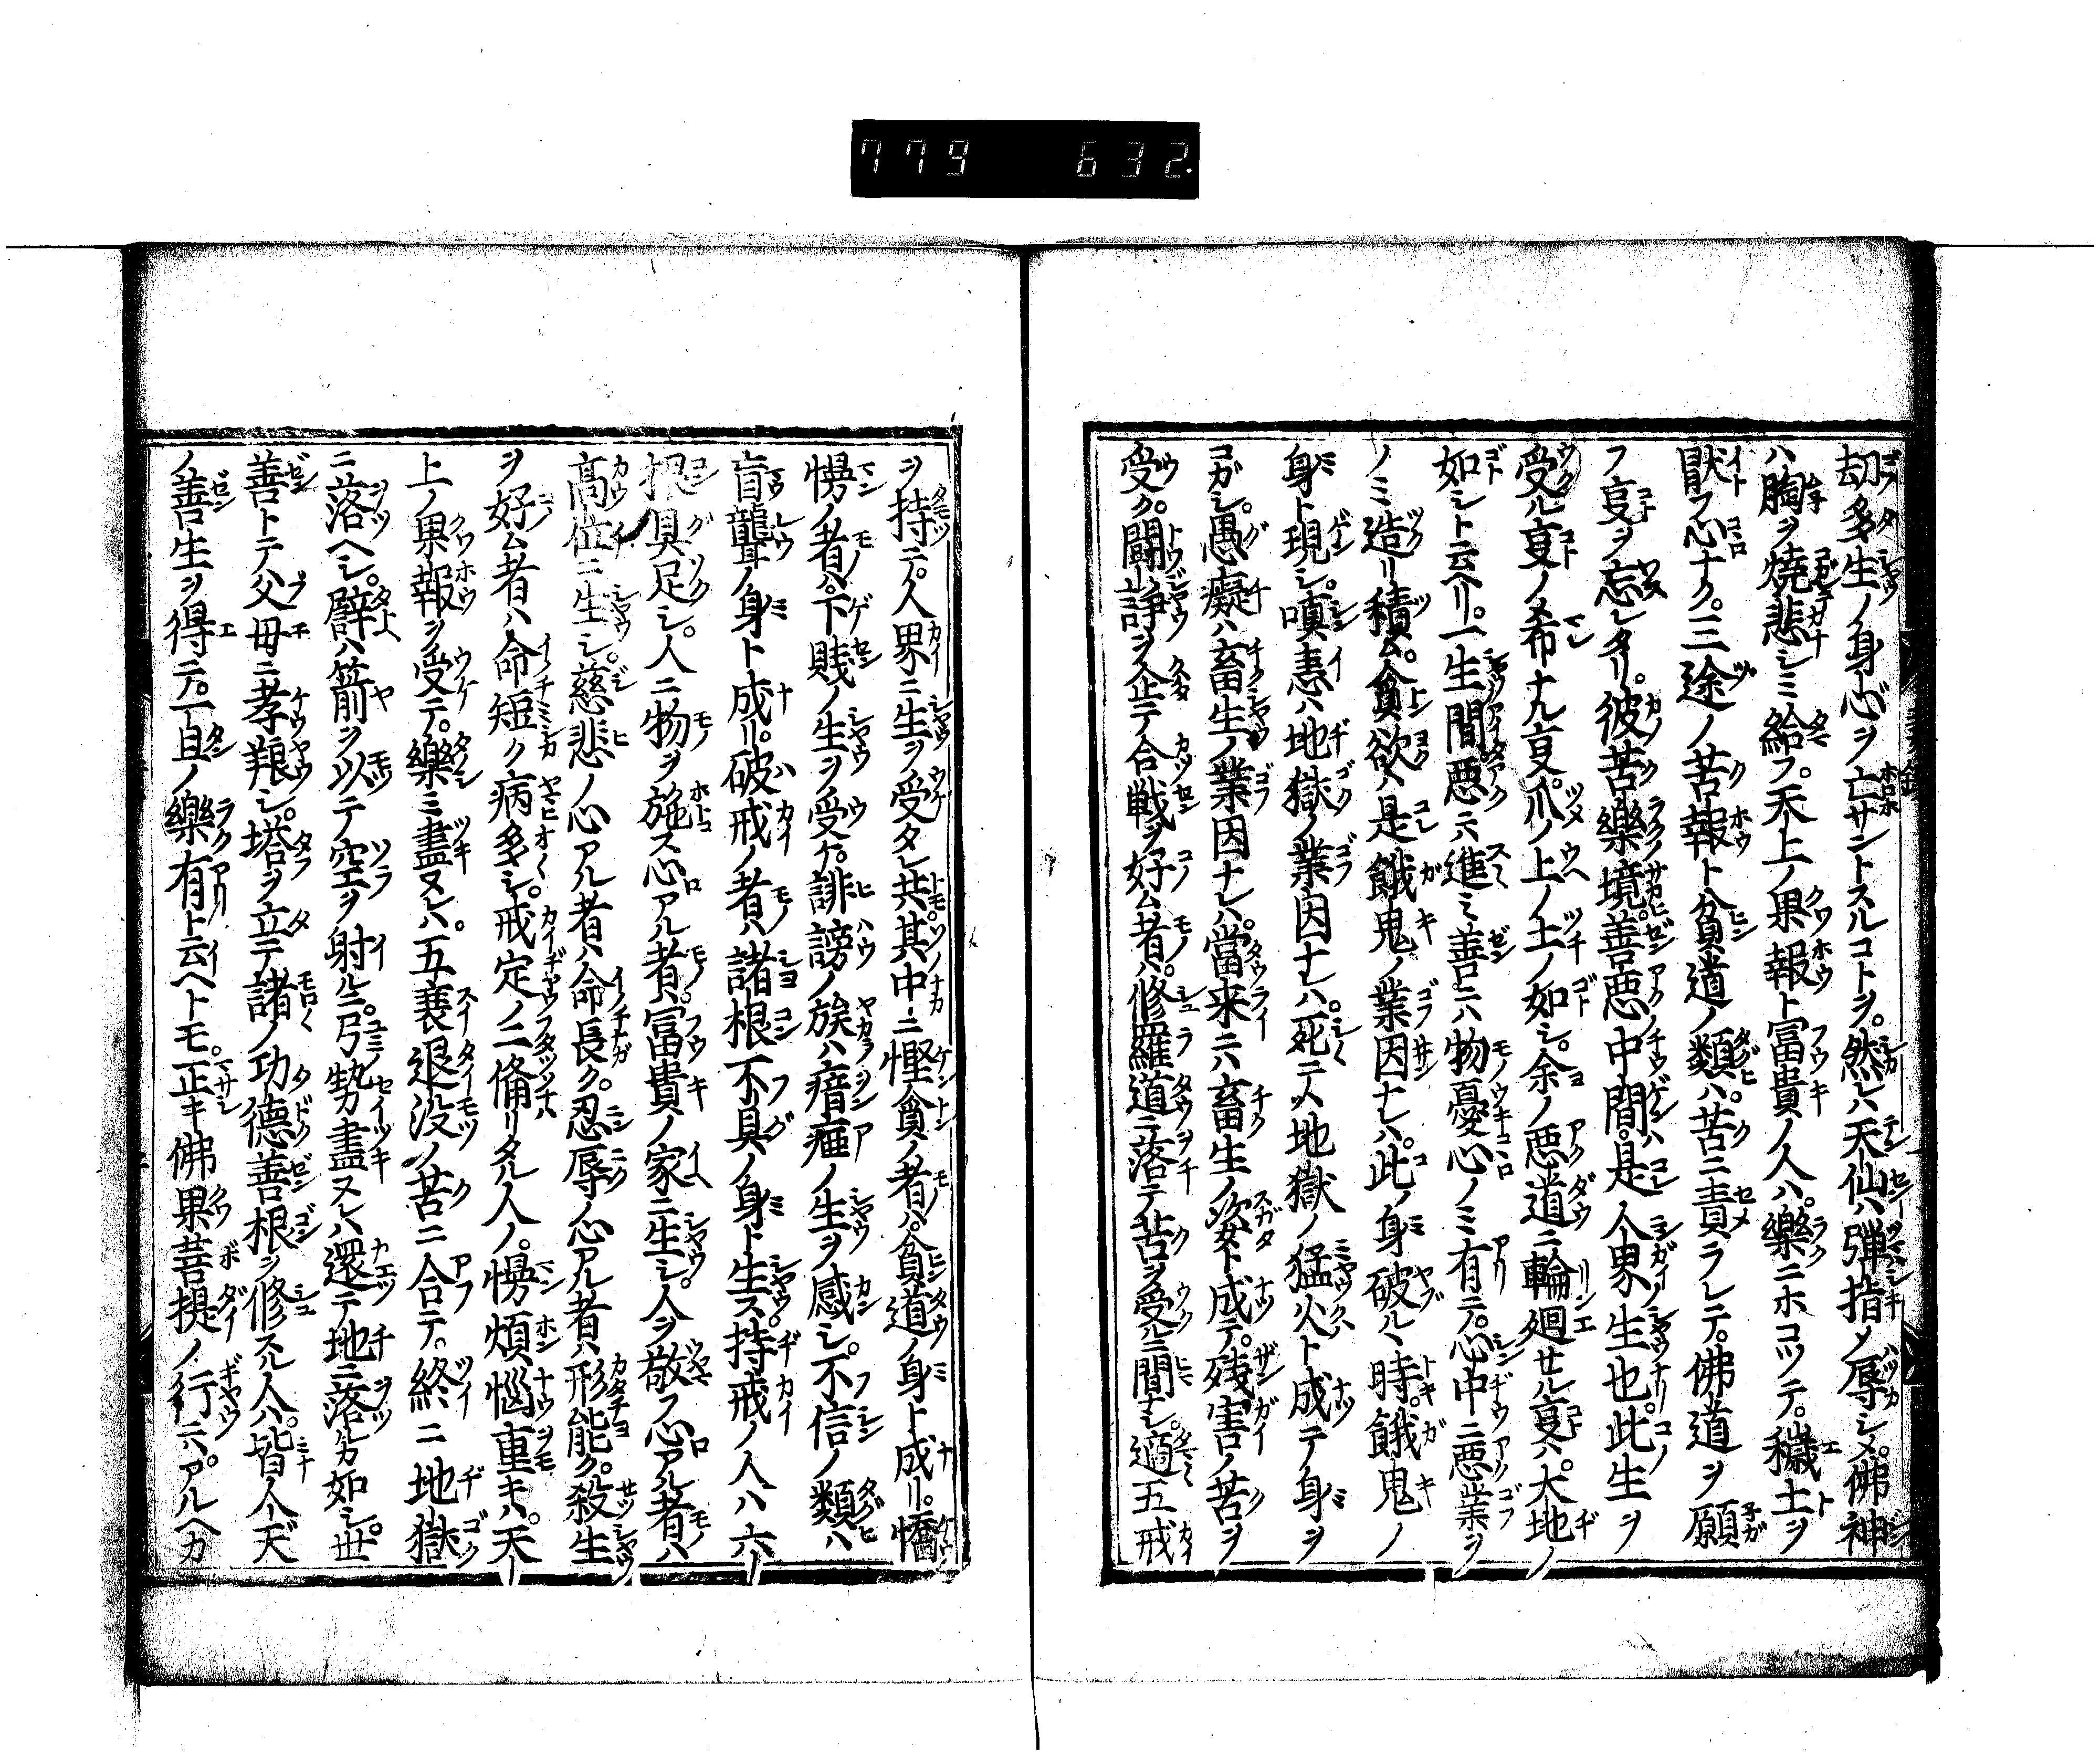 779 632.
劫多生ノ身心ヲ亡サントスルコトヲ。然レハ天仙ハ弾指メ辱シメ。佛神
ハ胸ヲ焼悲シミ給フ。天上ノ果報ト冨貴ノ人ハ。樂ニホコツテ。穢土ヲ
厭フ心ナク。三途ノ苦報ト貧道ノ類ハ。苦ニ責ラレテ。佛道ヲ願
フ㕝ヲ忘レタリ。彼苦樂境。善惡中間。是人界生也。此生ヲ
受ル㕝ノ希ナル㕝。爪ノ上ノ土ノ如シ。余ノ悪道ニ輪廻セル㕝ハ。大地ノ
如シト云ヘリ。一生間惡ニハ進ミ善ニハ物憂心ノミ有テ。心中ニ悪業ヲ
ノミ造リ積ム。貪欲ハ是餓鬼ノ業因ナレハ。此ノ身破ルヽ時。餓鬼ノ
身ト現シ。嗔恚ハ地獄ノ業因ナレハ。死ニ入地獄ノ猛火ト成テ身ヲ
コガシ。愚癡ハ畜生ノ業因ナレハ。當来ニハ畜生ノ姿ト成テ。残害ノ苦ヲ
受ク。闘諍ヲ企テ合戦ヲ好ム者ハ。修羅道ニ落テ苦ヲ受ルニ間ナシ。適五戒
ヲ持ニ。人界ニ生ヲ受タレ共。其中ニ慳貪ノ者ハ。貧道ノ身ト成リ。憍
慢ノ者ハ。下賎ノ生ヲ受ケ。誹謗ノ族ハ瘖瘂ノ生ヲ感シ。不信ノ類ハ
盲聾ノ身ト成リ。破戒ノ者ハ諸根不具ノ身ト生ス。持戒ノ人ハ六
根具足シ。人ニ物ヲ施ス心アル者ハ。冨貴ノ家ニ生シ。人ヲ敬フ心アル者ハ
高位ニ生シ。慈悲ノ心アル者ハ命長ク。忍辱ノ心アル者ハ形能ク。殺生
ヲ好ム者ハ命短ク病多シ。戒定ノ二備リタル人ノ。慢煩惱重キハ。天
上ノ果報ヲ受テ。樂ミ盡ヌレハ。五衰退没ノ苦ニ合テ。終ニ地獄
ニ落ヘシ。譬ハ箭ヲ以テ空ヲ射ルニ。弓勢盡ヌレハ還テ地ニ落ルカ如シ。世
善トテ父母ニ孝養シ。塔ヲ立テ諸ノ功德善根ヲ修スル人ハ。皆人天
ノ善生ヲ得テ。一旦ノ樂有ト云ヘトモ。正キ佛果菩提ノ行ニハ。アルヘカ